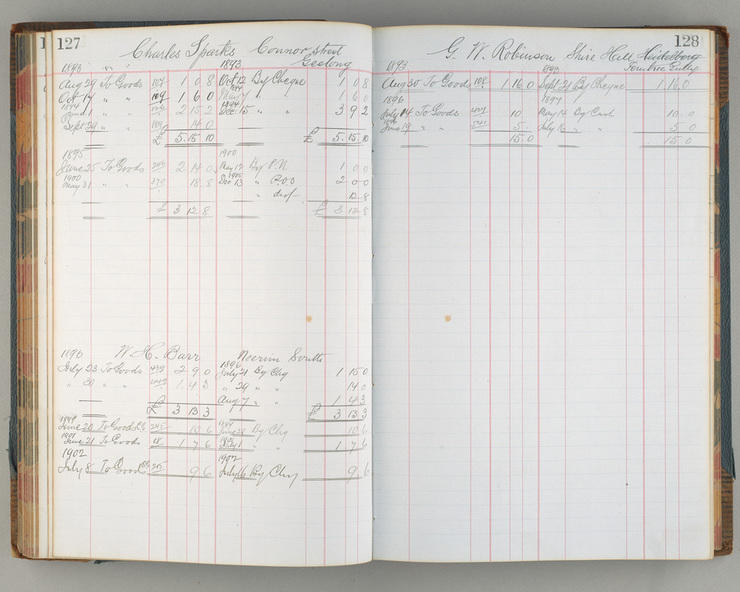 127
Charles Sparks Connor Street
Geelong
1893 " " 1893
Aug 29 To Goods 107 1 0 8 Oct 12 By Cheque 1 0 8
Oct 17 " " 109 1 6 0 1 6 0
1894 2 15 2 Dec 15 " " 3 9 2
Sept 29 " " 14 0
£ 5 15 10 £ 5 15 10
1895 1900
June 25 To Goods 2 14 0 May 17 By P.N. 1 0 0
1900
May 31 " " 18 8 Dec 13 " P.O.O 2 0 0
12 8
£ 3 12 8 £ 3 12 8
1896 W. H. Barr Neerim South
1896
July 23 To Goods 2 9 0 July 21 By Chq 1 15 0
" 30 " " 1 4 3 " 29 " " 14 0
Aug 7 " " 1 4 3
£ 3 13 3 £ 3 13 3
June 20 To Goods 10 6 June 28 By Chq 10 6
June 21 To Goods 1 7 6 1 7 6
1902 1902
July 8 To Goods 9 6 July 16 By Chq 9 6
128
G. W. Robinson Shire Hall Heidelberg
Ferntree Gully
1893 1893
Aug 30 To Goods 108 1 16 0 Sept 21 By Cheque 1 16 0
1896 1897
July 14 To Goods 10 May 14 By Cash 10 0
June 19 " " 5 July 16 " " 5 0
15 0 15 0